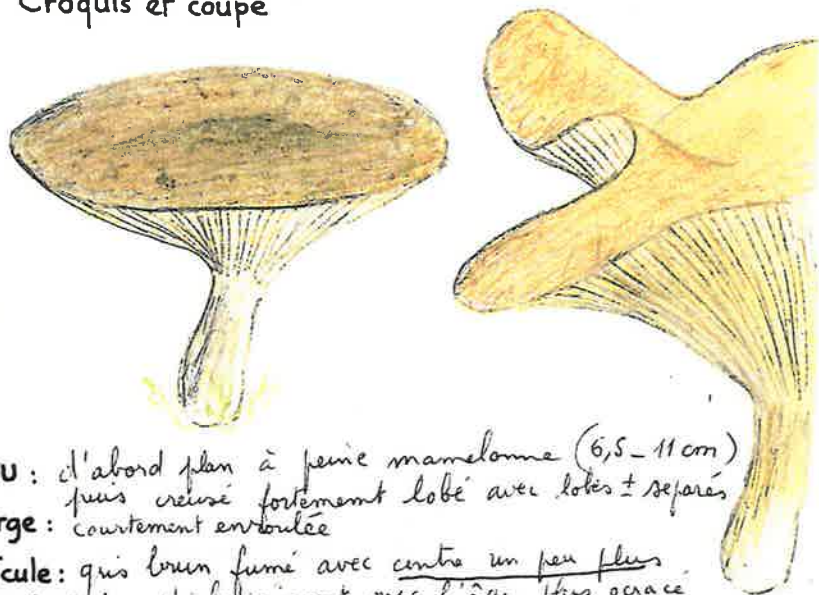 Croquis et coupe
U : d'abord plan à peine mamelonné (6,5 - 11 cm)
puis creusé fortement lobé avec lobes ± séparés
rge : courtement enroulée
cule : gris brun fumé avec centre un peu plus
avec l'âge plus ocracé